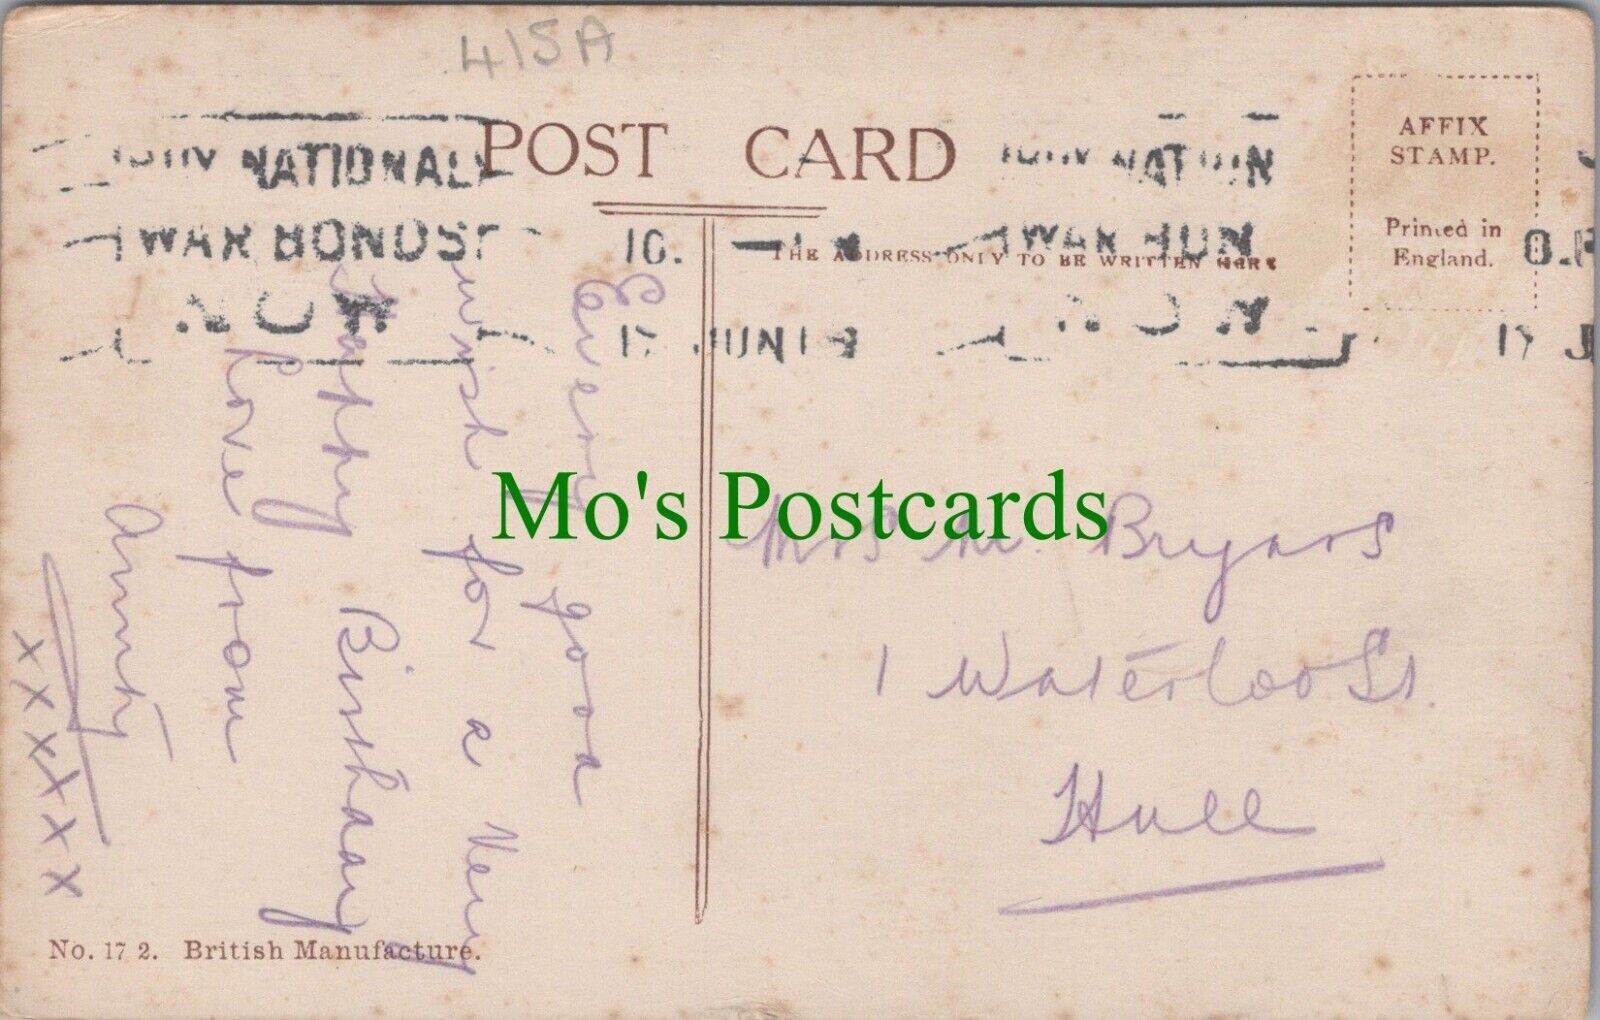 415A
POST CARD
AFFIX
STAMP.
Printed in
England.
NATIONAL
WAR BONDS
NOW
17 JUN 18
WAR
8.P
17 J
THE ADDRESS ONLY TO BE WRITTEN HERE
Every good
wish for a Very
Happy Birthday
Love from
Aunty
x x x x x x
Mo's Postcards
Mrs M. Bryars
1 Waterloo St.
Hull
No. 17 2. British Manufacture.